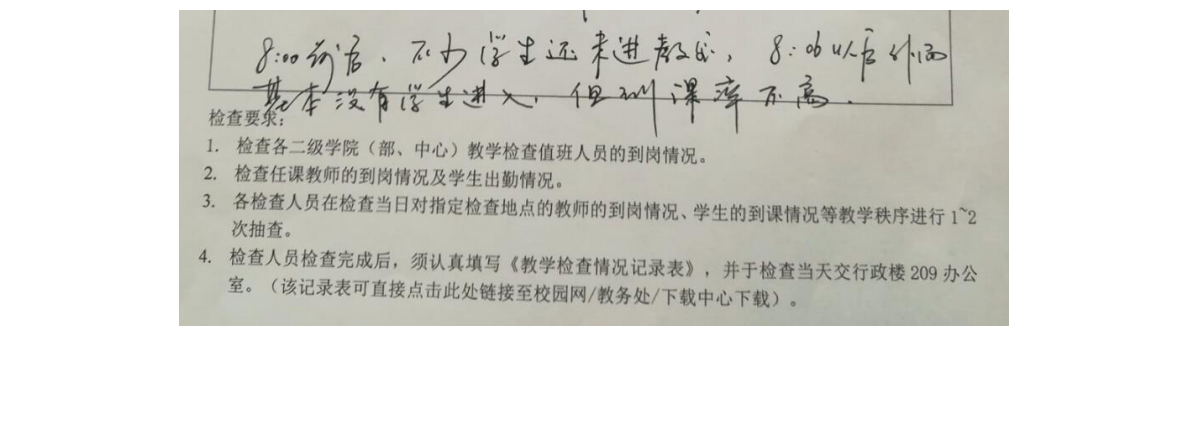 8:00前后、不少学生还未进教室，8:06以后外面
基本没有学生进入，但到课率不高.
检查要求：
1. 检查各二级学院（部、中心）教学检查值班人员的到岗情况。
2. 检查任课教师的到岗情况及学生出勤情况。
3. 各检查人员在检查当日对指定检查地点的教师的到岗情况、学生的到课情况等教学秩序进行 1~2
次抽查。
4. 检查人员检查完成后，须认真填写《教学检查情况记录表》，并于检查当天交行政楼 209 办公
室。（该记录表可直接点击此处链接至校园网/教务处/下载中心下载）。